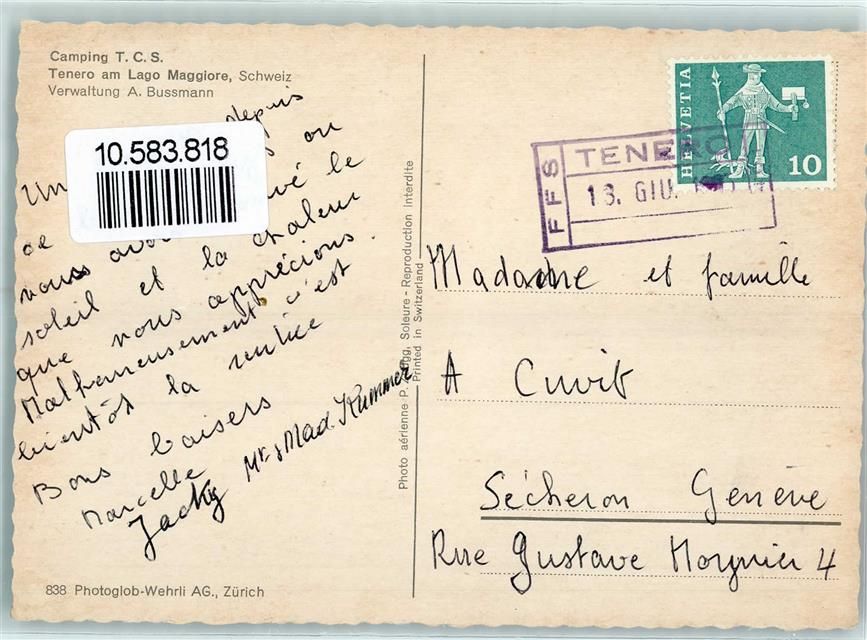 Camping T. C. S.
Tenero am Lago Maggiore, Schweiz
Verwaltung A. Bussmann
10.583.818
depuis
Un ou
ce le
nous
soleil et la chaleur
que nous apprécions.
Malheureusement c'est
bientôt la rentrée
Bons baisers
Marcelle
Jacky Mr & Mad. Kummer
838 Photoglob-Wehrli AG., Zürich
Photo aérienne P. Soleure - Reproduction interdite
Printed in Switzerland
HELVETIA
10
FFS
TENERO
13. GIU.
Madame et famille
A Cuvit
Sécheron Genève
Rue Gustave Moynier 4